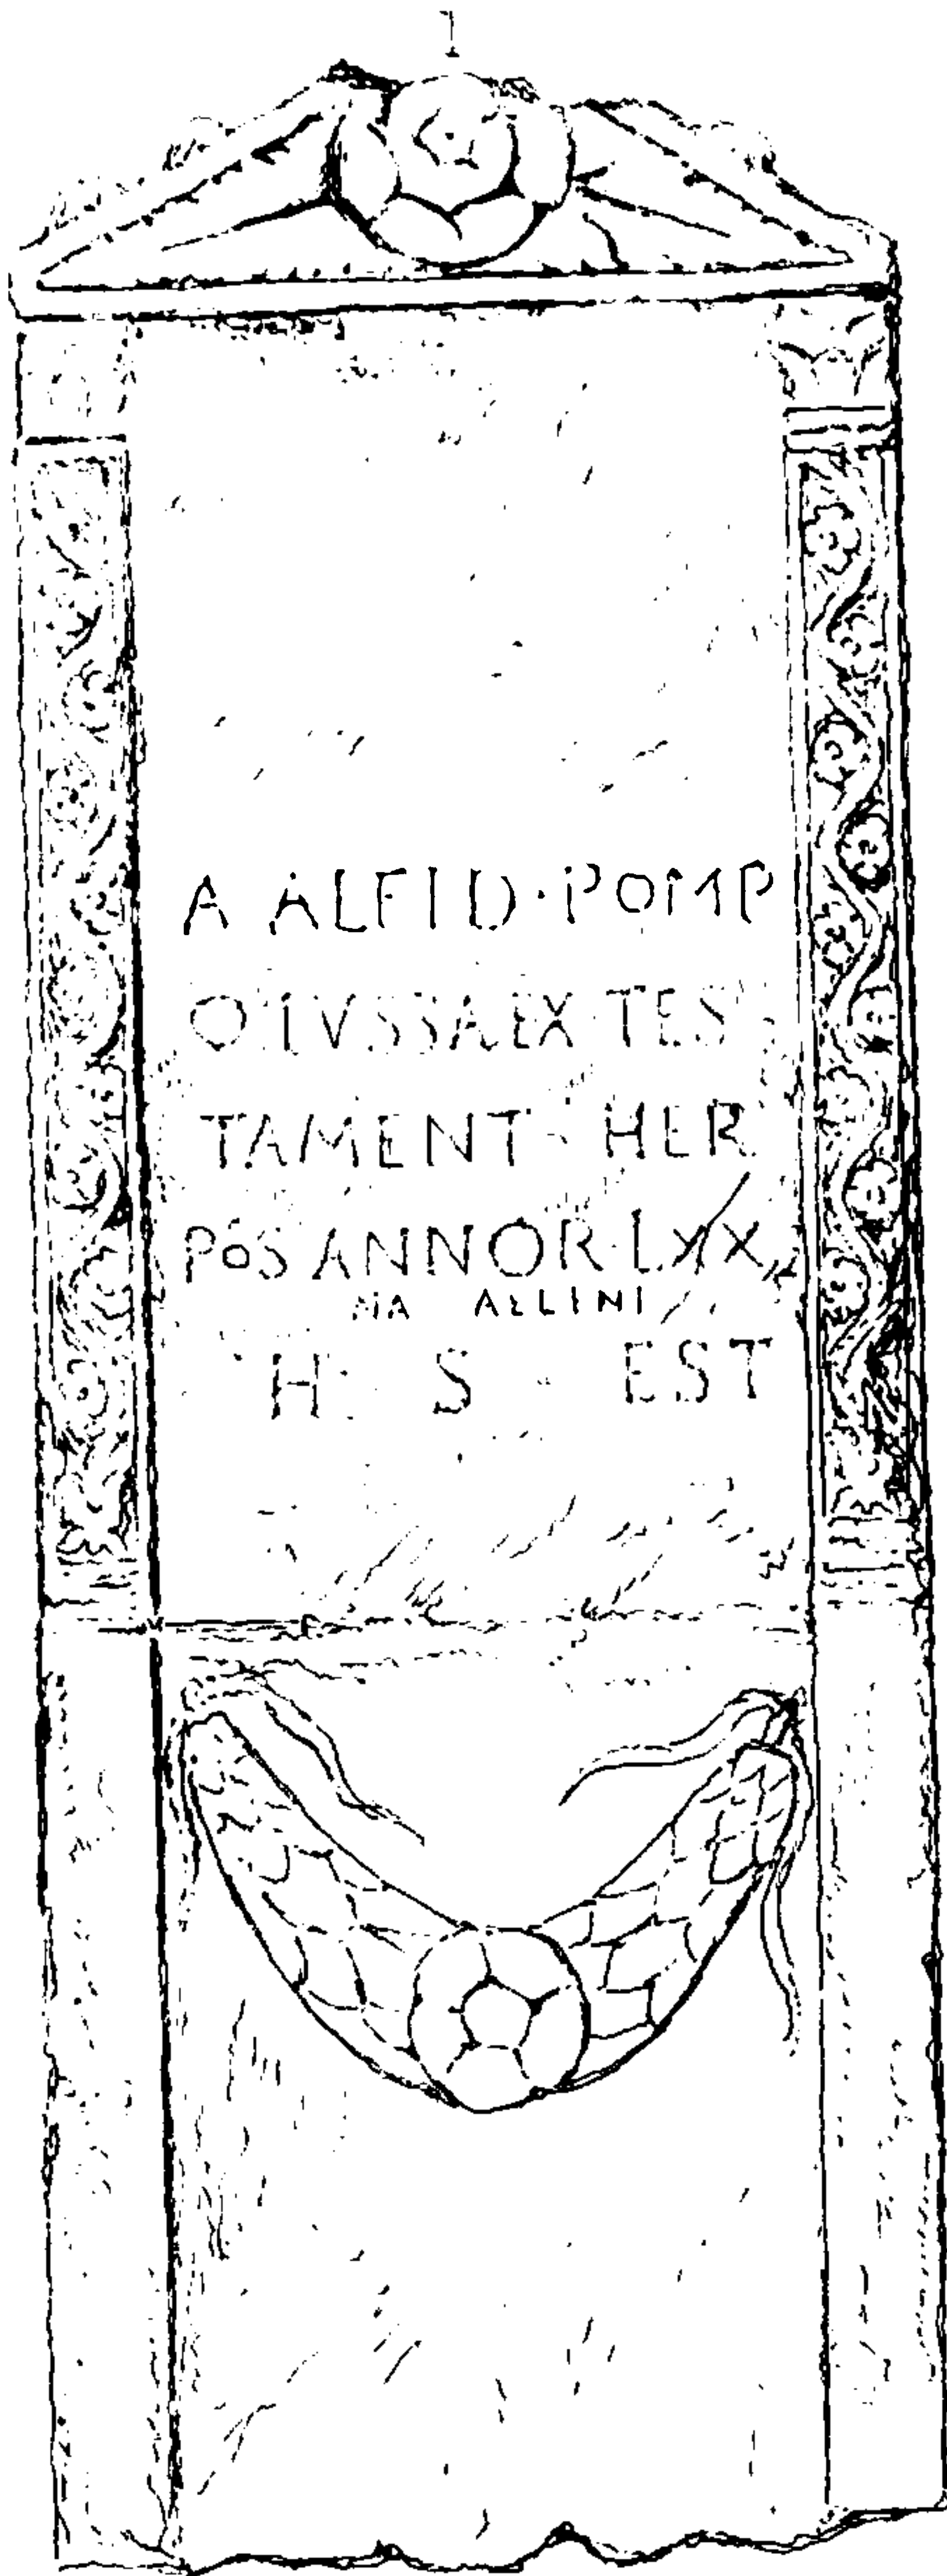 1
A ALFID · POMP
O IVSSA EX TES
TAMENT HER
POS ANNOR LXX
NA AELINI
H S EST